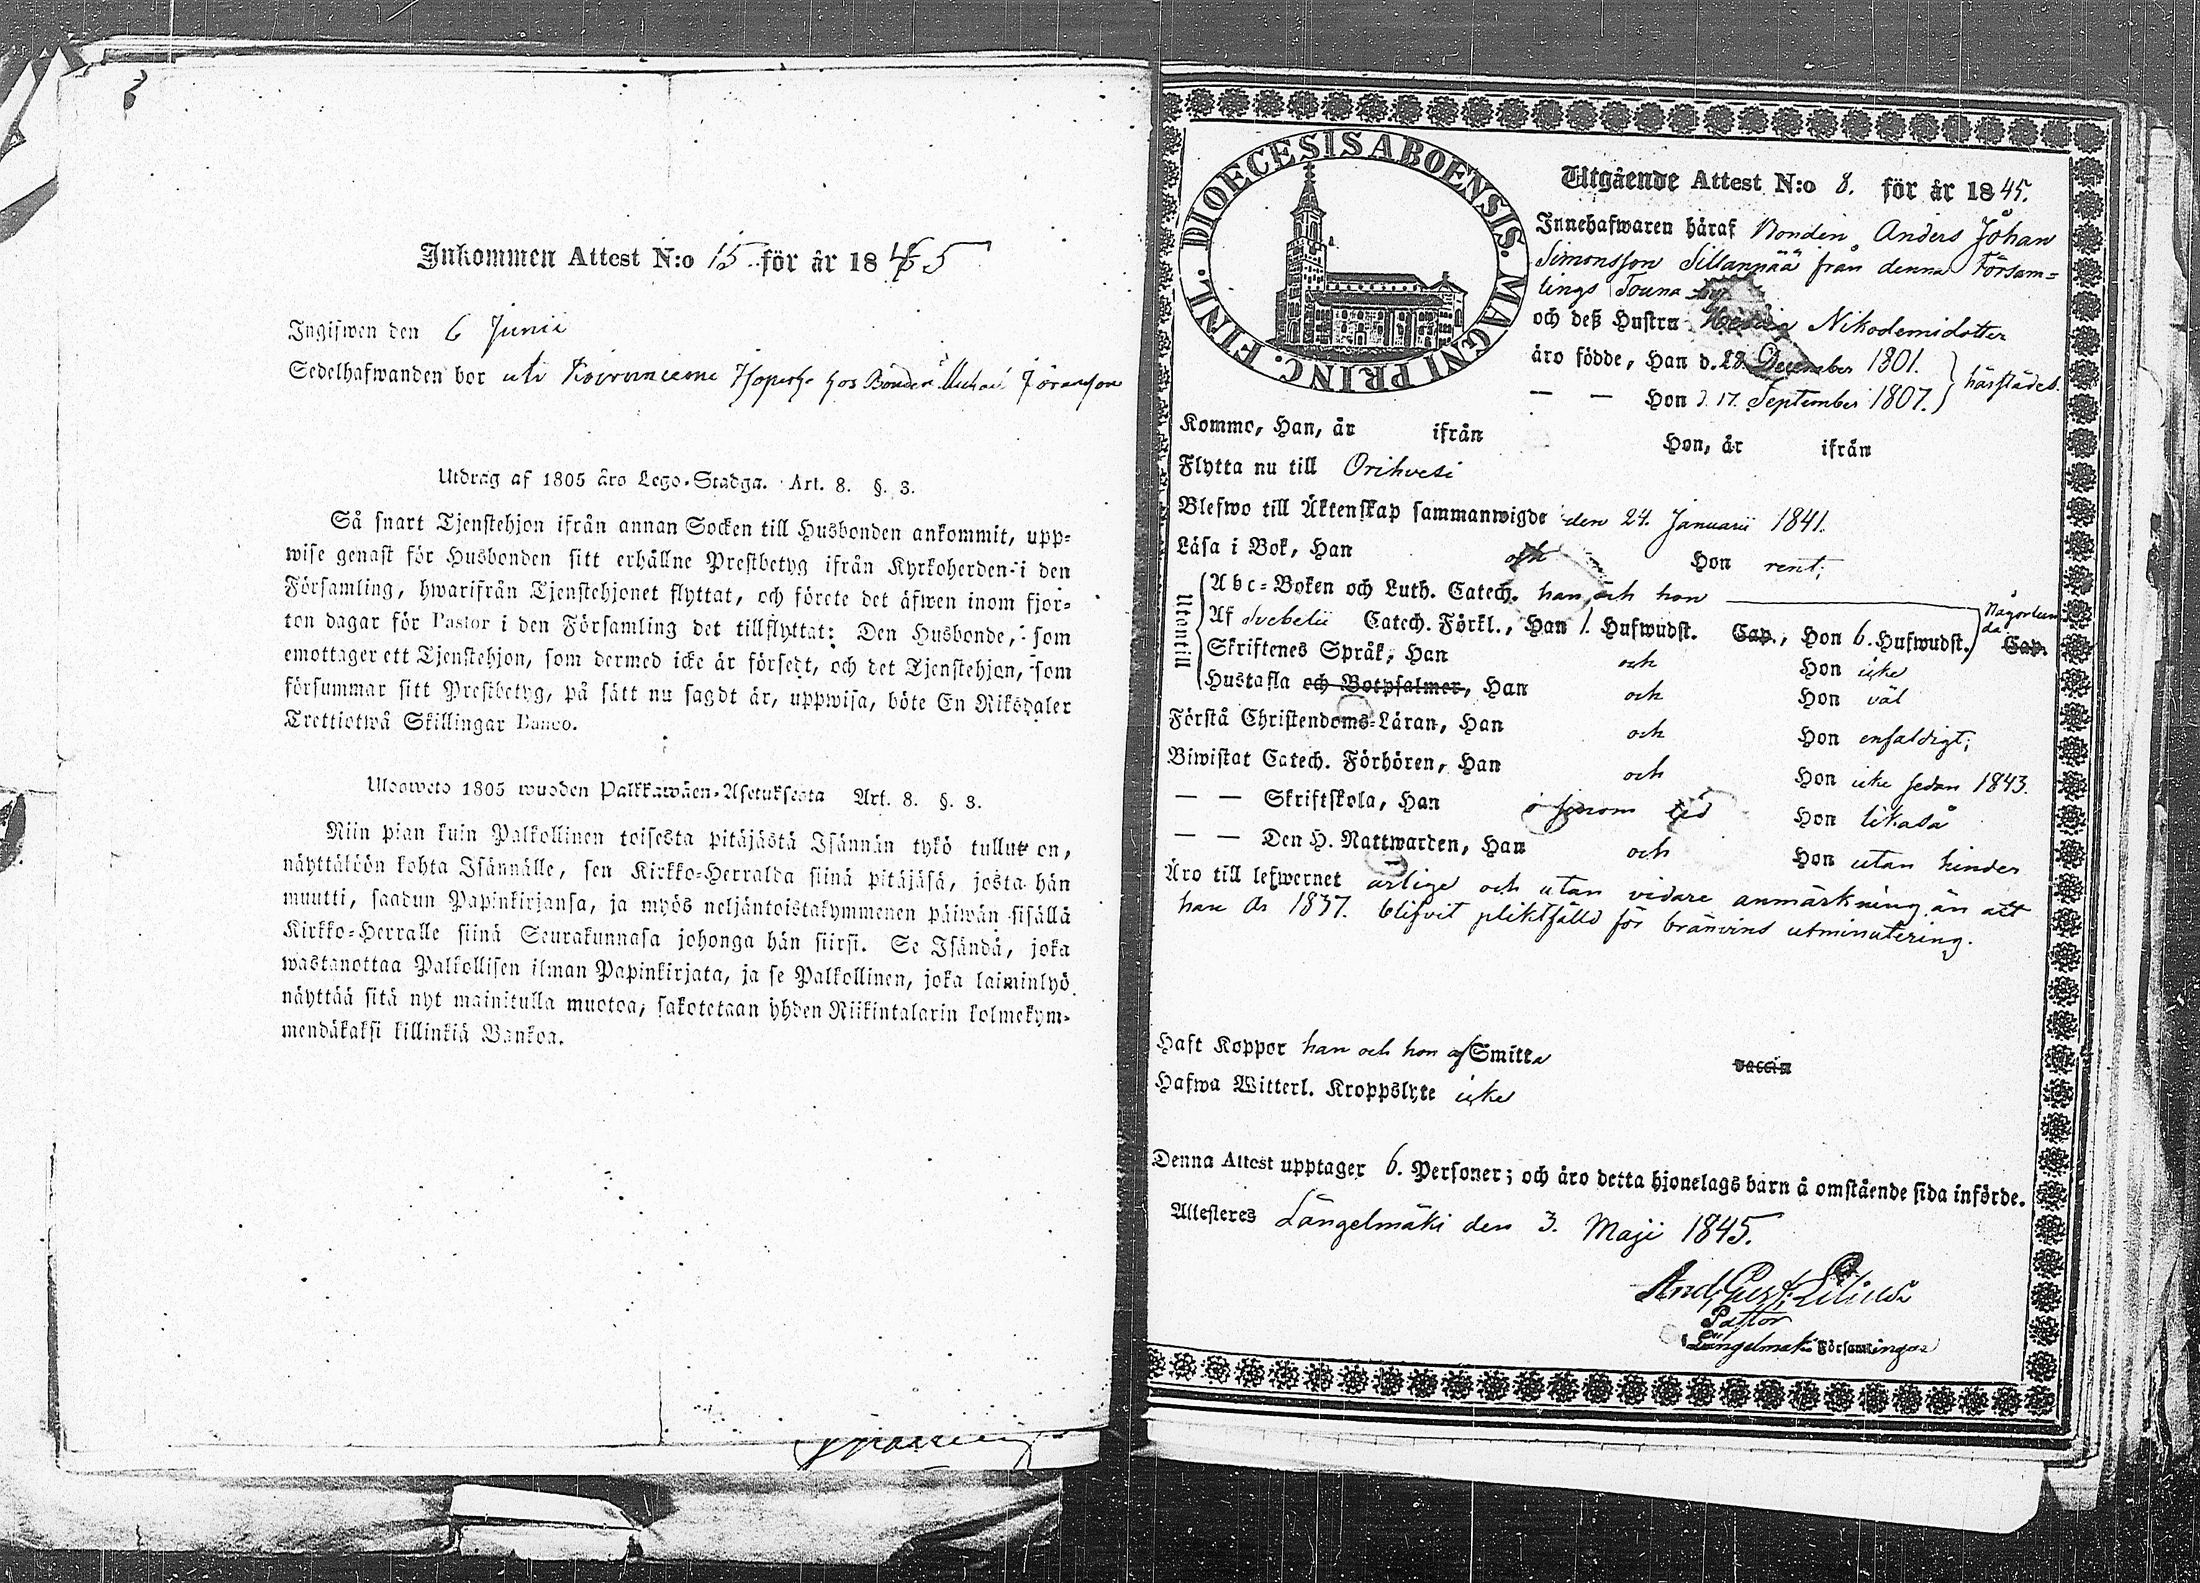 Inkommen Attest N:o 15 för år 1845
Ingifwen den 6 Junii
Sedelhafwanden bor uti hos Bonden Michel Jöransson
Utdrag af 1805 års Lego-Stadga. Art. 8. §. 3.
Så snart Tjenstehjon ifrån annan Socken till Husbonden ankommit, upp-
wise genast för Husbonden sitt erhållne Prestbetyg ifrån Kyrkoherden i den
Församling, hwarifrån Tjenstehjonet flyttat, och förete det äfwen inom fjor-
ton dagar för Pastor i den Församling det tillflyttat: Den Husbonde, som
emottager ett Tjenstehjon, som dermed icke är försedt, och det Tjenstehjon, som
försummar sitt Prestbetyg, på sätt nu sagdt är, uppwisa, böte En Riksdaler
Trettiotwå Skillingar Banco.
Ulosweto 1805 wuoden Palkkawäen-Asetuksesta Art. 8. §. 3.
Niin pian kuin Palkollinen toisesta pitäjästä Isännän tykö tullut on,
näyttäköön kohta Isännälle, sen Kirkko-Herralda siinä pitäjäsä, josta hän
muutti, saadun Papinkirjansa, ja myös neljäntoistakymmenen päiwän sisällä
Kirkko-Herralle siinä Seurakunnasa johonga hän siirsi. Se Isändä, joka
wastanottaa Palkollisen ilman Papinkirjata, ja se Palkollinen, joka laiminlyö
näyttää sitä nyt mainitulla muotoa, sakotetaan yhden Riikintalarin kolmekym-
mendäkaksi killinkiä Bankoa.
DIOECESIS ABOENSIS. MAGNI PRINC. FINL.
Utgående Attest N:o 8. för år 1845.
Innehafwaren häraf Bonden Anders Johan
Simonsson Sillanpää från denna Försam-
lings Touna by
och deß Hustru Hedvig Nikodemidotter
äro födde, Han d. 28. December 1801.
— — Hon d. 17. September 1807. } härstädes.
Kommo, Han, år ifrån Hon, år ifrån
Flytta nu till Orihvesi
Blefwo till Äktenskap sammanwigde den 24. Januarii 1841.
Läsa i Bok, Han och Hon rent;
Utontill
Abc-Boken och Luth. Catech. han och hon
Någorlun-
da
Af Svebelii Catech. Förkl., Han 1. Hufwudst. Cap., Hon 6. Hufwudst. Cap.
Skriftenes Språk, Han och Hon icke
Hustafla och Botpsalmer, Han och Hon väl
Förstå Christendoms-Läran, Han och Hon enfaldigt;
Biwistat Catech. Förhören, Han och Hon icke sedan 1843.
— — Skriftskola, Han i sinom tid Hon likaså
— — Den H. Nattwarden, Han och Hon utan hinder
Äro till lefwernet ärlige och utan vidare anmärkning än att
han År 1837. blifvit pliktfälld för bränvins utminutering.
Haft Koppor han och hon af Smitta vaccin
Hafwa Witterl. Kroppslyte icke
Denna Attest upptager 6. Personer; och äro detta hjonelags barn å omstående sida införde.
Attesteres Längelmäki den 3. Maji 1845.
And. Gust. Lilius
Pastor
i Längelmäki Församlingar